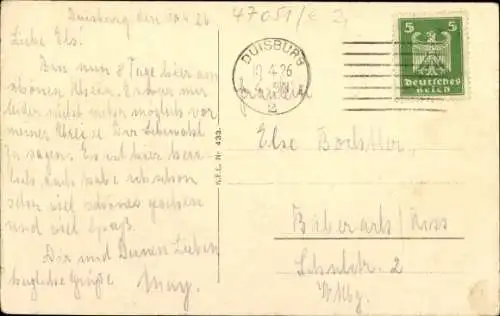 Duisburg den 10.4.26
47051/c 2,
Liebe Els!
Bin nun 8 Tage hier am
schönen Rhein. Es war mir
leider nicht mehr möglich vor
meiner Abreise Dir Lebewohl
zu sagen. Es ist hier herr-
lich, habe ich schon
sehr viel schönes gesehen
und viel Spaß.
Dir und Deinen Lieben
herzliche Grüße May.
DUISBURG
10.4.26
2
5 5
Deutsches
Reich
Fräulein
Else
Schulstr. 2
Wttbg.
Nr. 433.